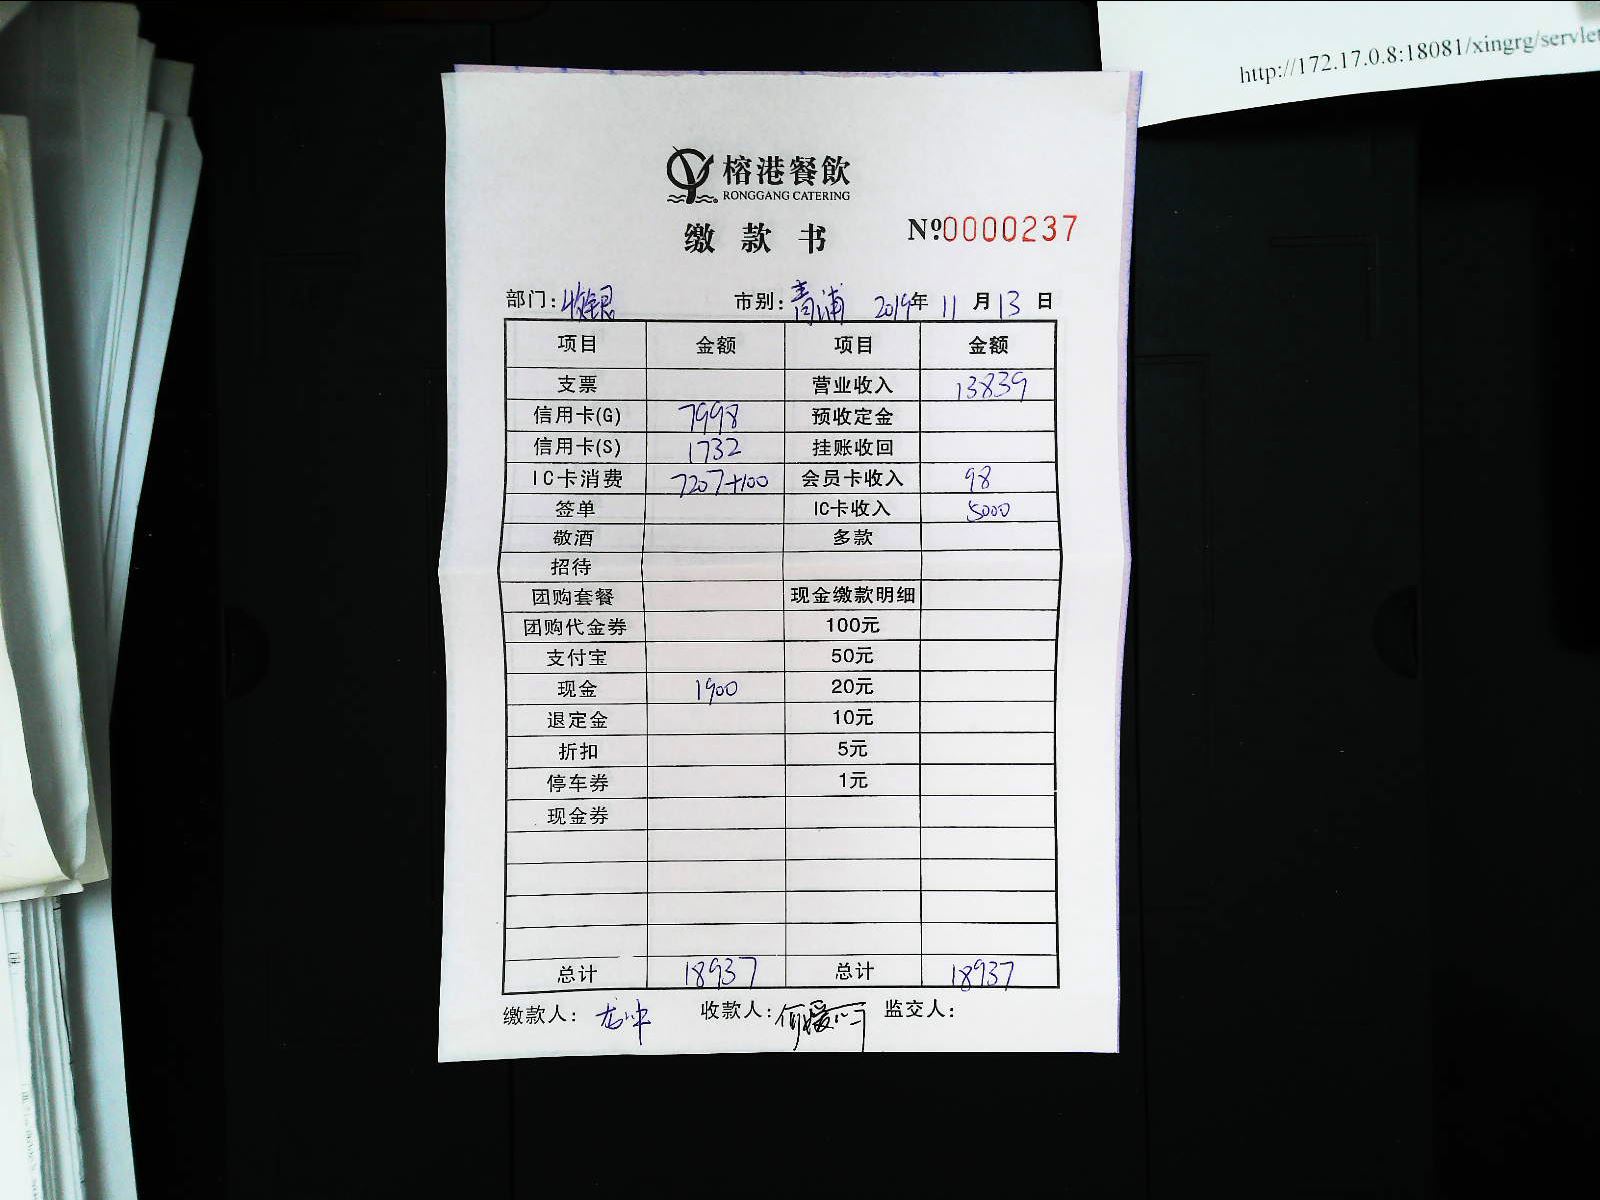 http://172.17.0.8:18081/xingrg/servlet
榕港餐飲
RONGGANG CATERING
缴款书 №0000237
部门: 收银 市别: 青浦 2019年 11月13日
项目 金额 项目 金额
支票 营业收入 13839
信用卡(G) 7998 预收定金
信用卡(S) 1732 挂账收回
IC卡消费 7207+100 会员卡收入 98
签单 IC卡收入 5000
敬酒 多款
招待
团购套餐 现金缴款明细
团购代金券 100元
支付宝 50元
现金 1900 20元
退定金 10元
折扣 5元
停车券 1元
现金券
总计 18937 总计 18937
缴款人: 收款人: 监交人: